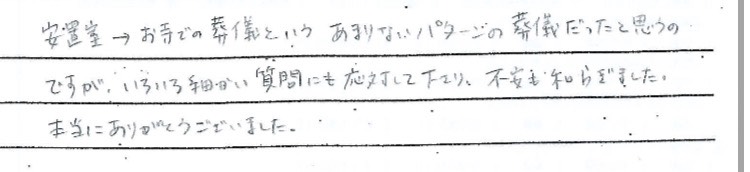 安置室→お寺での葬儀という あまりないパターンの葬儀だったと思うの
ですが、いろいろ細かい質問にも応対して下さり、不安も和らぎました。
本当にありがとうございました。